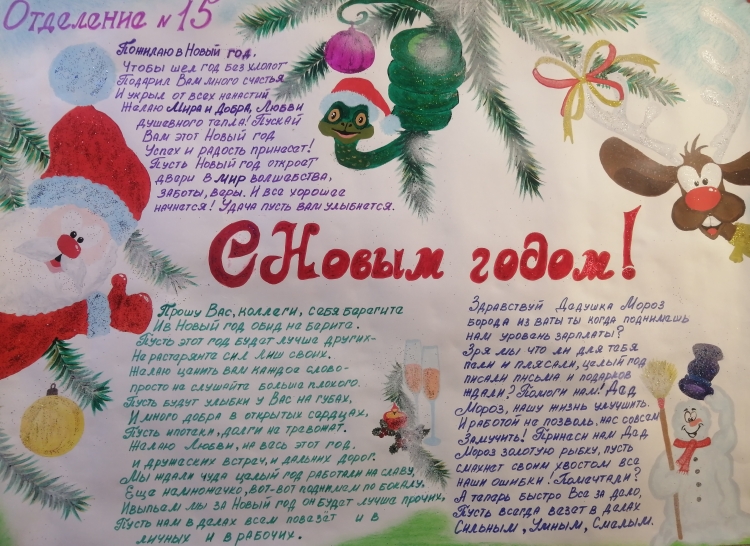 Отделение N 15
Пожилаю в Новый год.
Чтобы шел год без хлопот
Подарил Вам много счастья
И укрыл от всех ненастий
Желаю Мира и Добра, Любви
душевного тепла! Пускай
Вам этот Новый год
Успех и радость принесет!
Пусть Новый год откроет
двери в мир волшебства,
заботы, веры. И все хорошее
начнется! Удача пусть вам улыбнется.
С Новым годом!
Прошу Вас, коллеги, себя берегите
И в Новый год обид не берите.
Пусть этот год будет лучше других-
Не растеряйте сил лиш своих.
Желаю ценить вам каждое слово-
просто не слушайте больше плохого.
Пусть будут улыбки у Вас на губах,
И много добра в открытых сердцах,
Пусть ипотеки, долги не тревожат.
Желаю Любви, на весь этот год.
и дружеских встреч, и дальних дорог.
Мы ждали чуда целый год работали на славу,
Еще немножечко, вот-вот поднимем по бокалу.
И выпьем мы за Новый год он будет лучше прочих,
Пусть нам в делах всем повезёт и в
личных и в рабочих.
Здравствуй Дедушка Мороз
борода из ваты ты когда поднимешь
нам уровень зарплаты?
Зря мы что ли для тебя
пели и плясали, целый год
писали письма и подарков
ждали? Помоги нам! Дед
Мороз, нашу жизнь улучшить.
И работой не позволь, нас совсем
Замучить! Принеси нам Дед
Мороз золотую рыбку, пусть
смахнет своим хвостом все
наши ошибки! Помечтали?
А теперь быстро Все за дело,
Пусть всегда везет в делах
Сильным, Умным, Смелым.